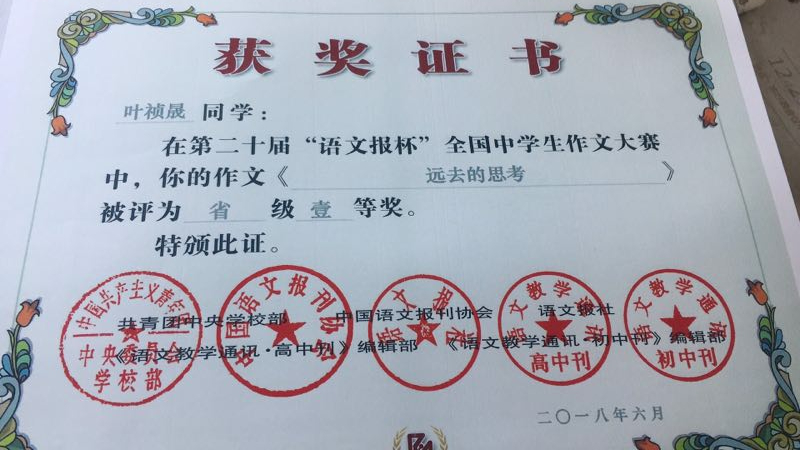 获奖证书
叶祯晟 同学：
在第二十届“语文报杯”全国中学生作文大赛
中，你的作文《 远去的思考 》
被评为 省 级 壹 等奖。
特颁此证。
共青团中央学校部 中国语文报刊协会 语文报社
《语文教学通讯·高中刊》编辑部 《语文教学通讯·初中刊》编辑部
中国共产主义青年团
中央委员会
学校部
中国语文报刊协会
语文报社
语文教学通讯
高中刊
语文教学通讯
初中刊
二〇一八年六月